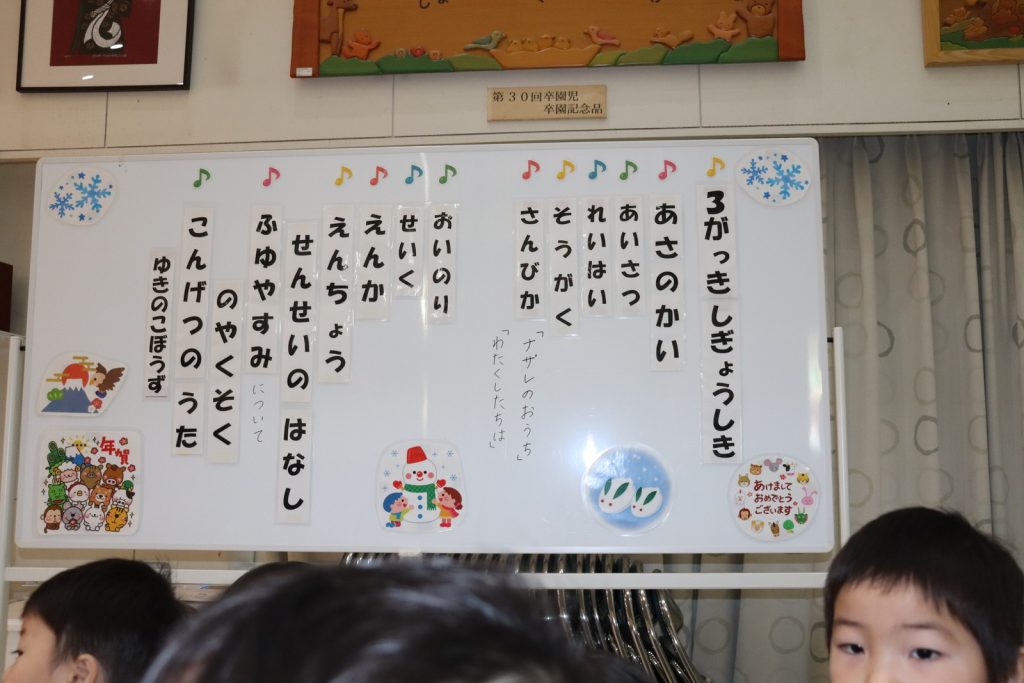 第30回卒園児
卒園記念品
3がっきしぎょうしき
あさのかい
あいさつ
れいはい
そうがく
さんびか
「ナザレのおうち」
「わたくしたちは」
おいのり
せいく
えんか
えんちょう
せんせいの はなし
ふゆやすみ について
のやくそく
こんげつの うた
ゆきのこぼうず
あけまして
おめでとう
ございます
年賀